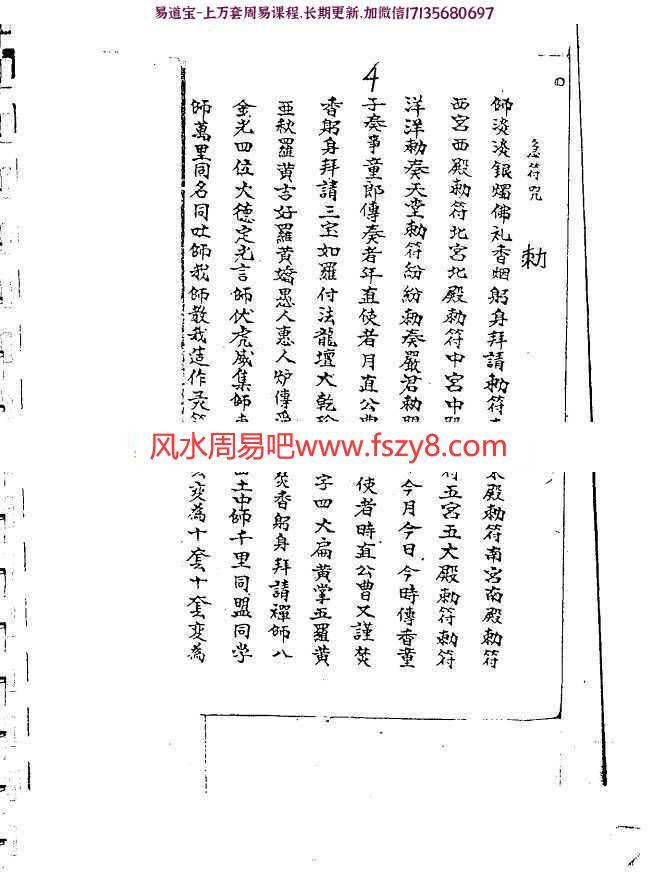 易道宝-上万套周易课程,长期更新,加微信17135680697
4
急符咒
勅
師淡淡銀燭佛礼香烟躬身拜請勅符
殿勅符南宮南殿勅符
西宮西殿勅符北宮北殿勅符中宮中
五宮五大殿勅符勅符
洋洋勅奏天堂勅符紛紛勅奏嚴君勅
今月今日今時傳香童
子奏事童郎傳奏者年直使者月直公曹
使者時直公曹又謹焚
香躬身拜請三宝如羅付法龍壇大乾
字四大扁黄掌五羅黄
亞秋羅黄吉好羅黄嬌愚人惠人炉傳
焚香躬身拜請禪師八
金光四位大德定光言師伏虎威集師
土中師千里同盟同学
師萬里同名同吐師我師教我造作灵
变為十套十套变為
风水周易吧www.fszy8.com